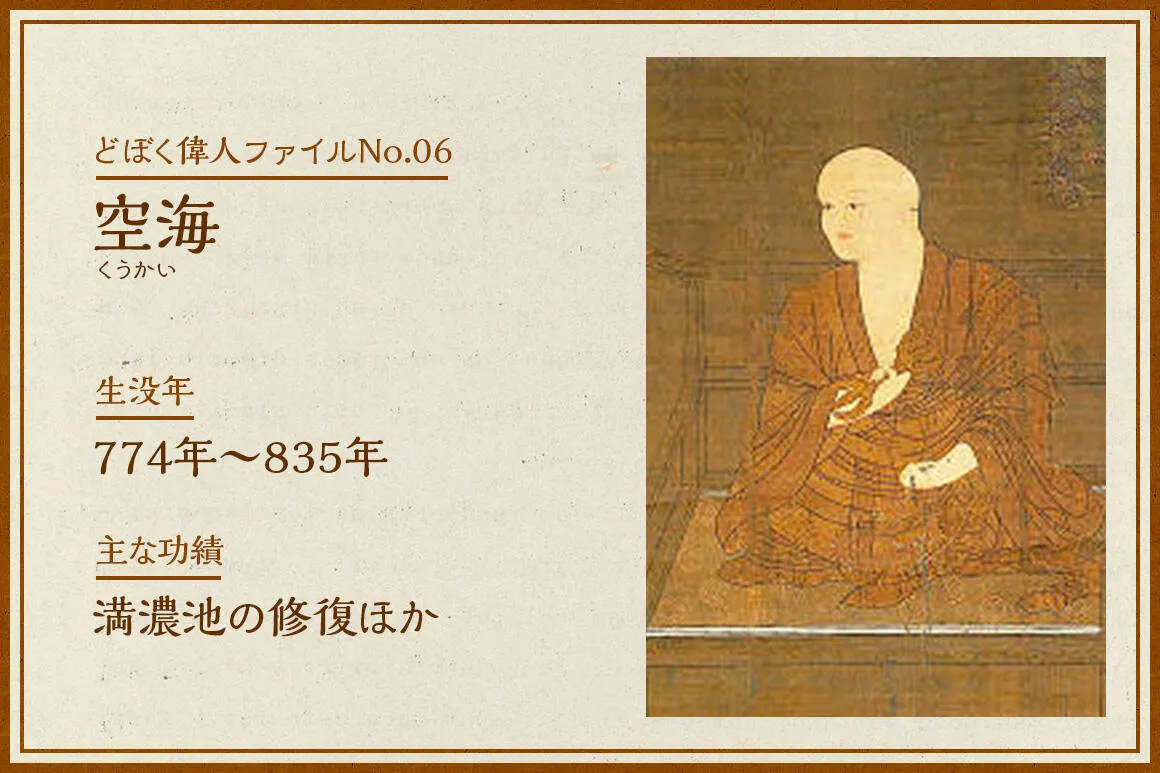 どぼく偉人ファイルNo.06
空海
くうかい
生没年
774年〜835年
主な功績
満濃池の修復ほか